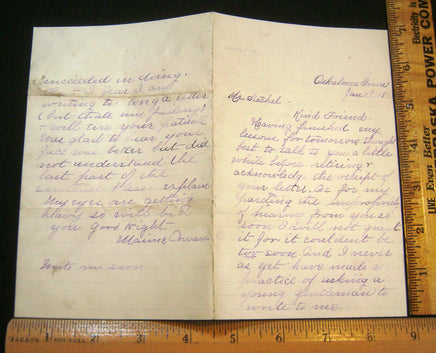 succeeded in doing.
I fear I am
writing too long a letter
(but thats my failing)
& will tire your patience
Was glad to hear your
was better but did
not understand the
last part of the
sentence Please explain
My eyes are getting
heavy so will bid
you Good night.
Write me soon.
Oskaloosa Iowa
Jan
Mr.
Kind Friend.
Having finished my
lessons for tomorrow thought
but to talk to you a little
while before retiring &
acknowledge the receipt of
your letter. As for my
pardting the impropriety
of hearing from you so
soon I will not grant
it for it couldent be
too soon and I never
as yet have made a
practice of asking a
young gentleman to
write to me.
1 2 3 4 5 6 7 8 9
Electricity is
EVEN Better